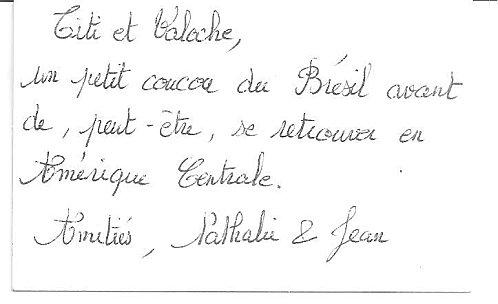 Titi et Valoche,
un petit coucou du Brésil avant
de, peut-être, se retrouver en
Amérique Centrale.
Amitiés, Nathalie & Jean